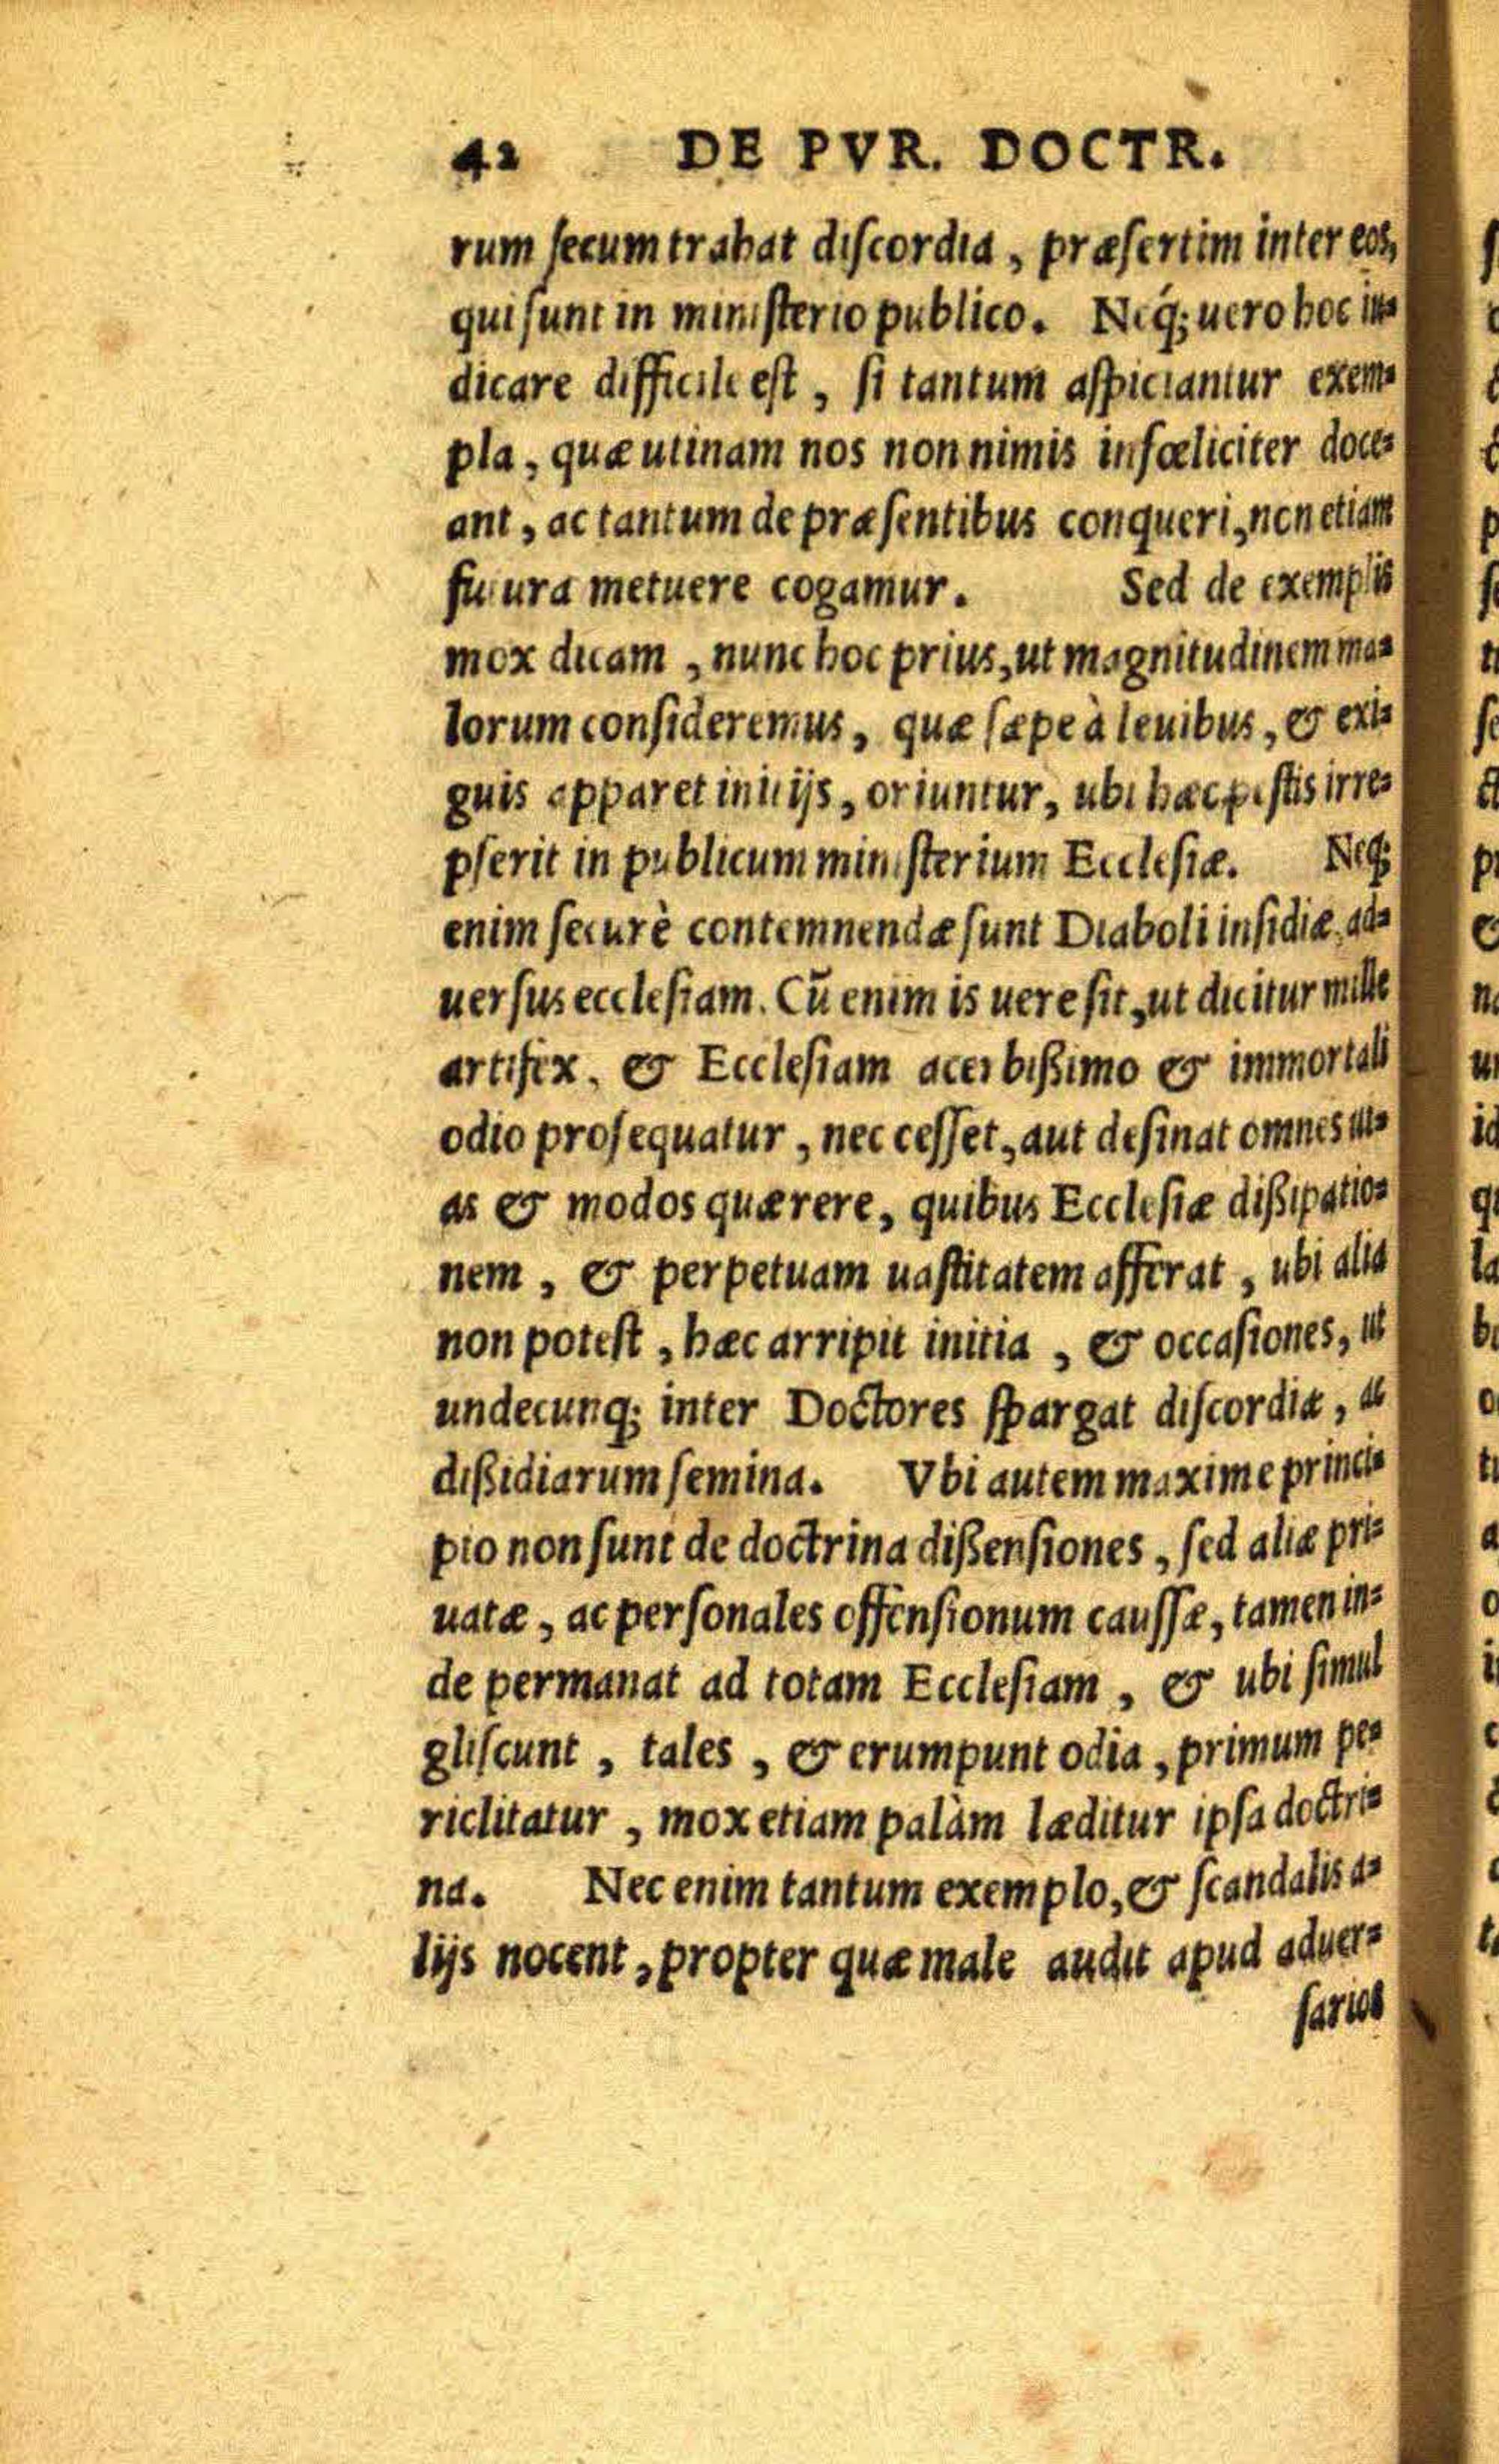 42 DE PVR. DOCTR.
rum secum trahat discordia, præsertim inter eos,
qui sunt in ministerio publico. Neq́; uero hoc iu-
dicare difficile est, si tantum aspiciantur exem-
pla, quæ utinam nos non nimis infœliciter doce-
ant, ac tantum de præsentibus conqueri, non etiam
futura metuere cogamur. Sed de exemplis
mox dicam, nunc hoc prius, ut magnitudinem ma-
lorum consideremus, quæ sæpe à leuibus, & exi-
guis apparet initijs, oriuntur, ubi hæc pestis irre-
pserit in publicum ministerium Ecclesiæ. Neq;
enim securè contemnendæ sunt Diaboli insidiæ ad-
uersus ecclesiam. Cũ enim is uere sit, ut dicitur mille
artifex, & Ecclesiam acerbißimo & immortali
odio prosequatur, nec cesset, aut desinat omnes ui-
as & modos quærere, quibus Ecclesiæ dißipatio-
nem, & perpetuam uastitatem afferat, ubi alia
non potest, hæc arripit initia, & occasiones, ut
undecunq; inter Doctores spargat discordiæ, ac
dißidiarum semina. Vbi autem maxime princi-
pio non sunt de doctrina dißensiones, sed aliæ pri-
uatæ, ac personales offensionum caussæ, tamen in-
de permanat ad totam Ecclesiam, & ubi simul
gliscunt, tales, & erumpunt odia, primum pe-
riclitatur, mox etiam palàm læditur ipsa doctri-
na. Nec enim tantum exemplo, & scandalis a-
lijs nocent, propter quæ male audit apud aduer-
sarios